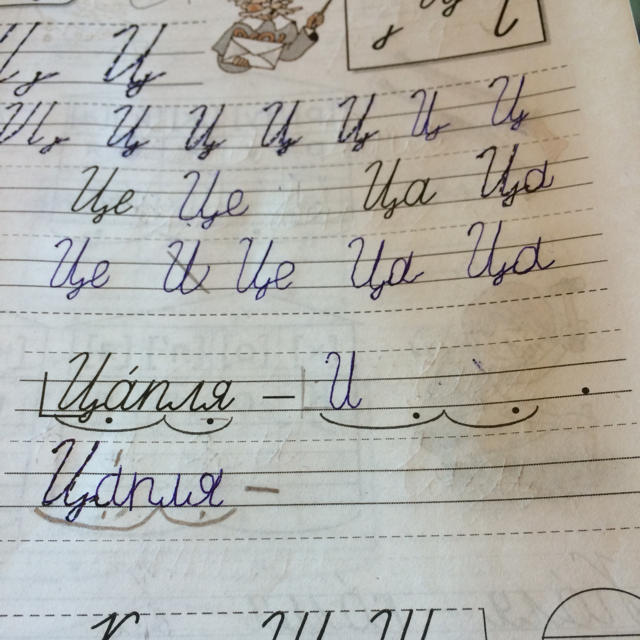 Ц Ц
Ц Ц Ц Ц Ц Ц Ц
Це Це Ца Ца
Це Це Ца Ца
Ца́пля – И
Ца́пля –